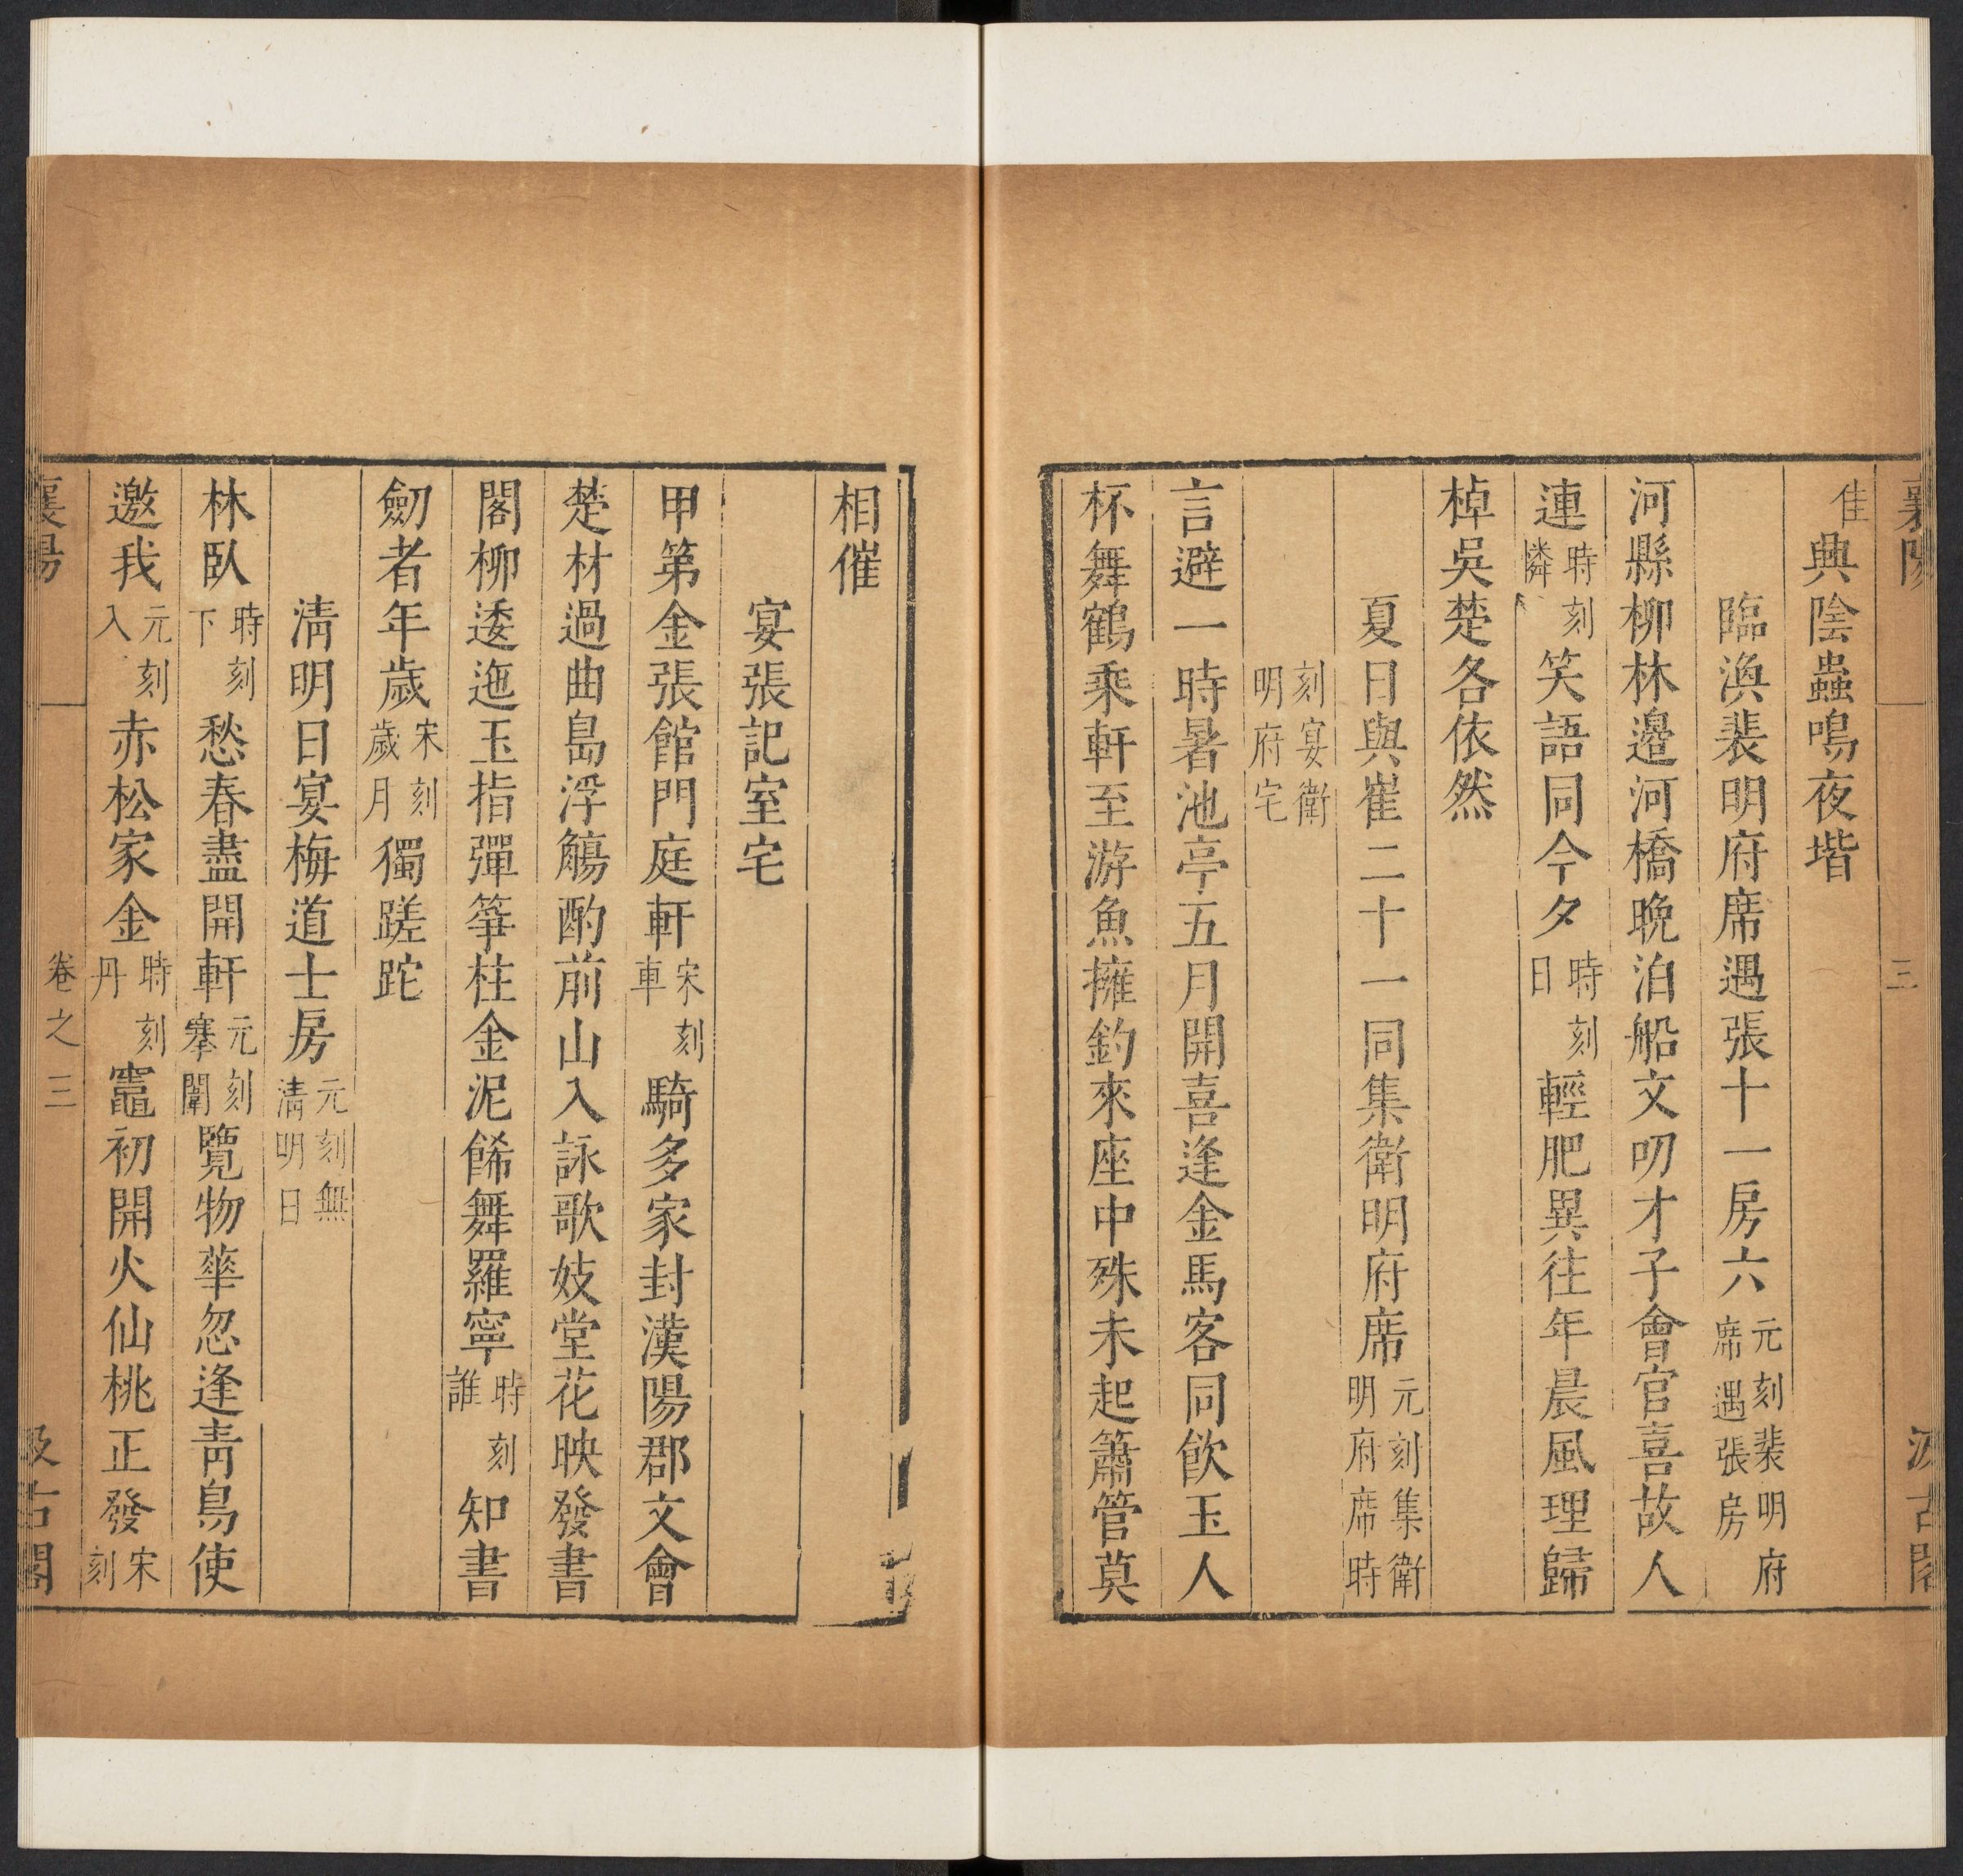 襄陽 三 汲古閣
佳興陰蟲鳴夜堦
臨渙裴明府席遇張十一房六元刻裴明府席遇張房
河縣柳林邉河橋晚泊船文叨才子會官喜故人
連時刻憐笑語同今夕時刻日輕肥異往年晨風理歸
棹吳楚各依然
夏日與崔二十一同集衛明府席元刻集衛明府席時
刻宴衛明府宅
言避一時暑池亭五月開喜逢金馬客同飲玉人
杯舞鶴乘軒至游魚擁釣來座中殊未起簫管莫
相催
宴張記室宅
甲第金張館門庭軒宋刻車騎多家封漢陽郡文會
楚材過曲島浮觴酌前山入詠歌妓堂花映發書
閣柳逶迤玉指彈箏柱金泥餙舞羅寧時刻誰知書
劒者年歲宋刻歲月獨蹉跎
清明日宴梅道士房元刻無清明日
林臥時刻下愁春盡開軒元刻搴闈覽物華忽逢青鳥使
邀我元刻入赤松家金時刻丹竈初開火仙桃正發宋刻
襄陽 卷之三 汲古閣